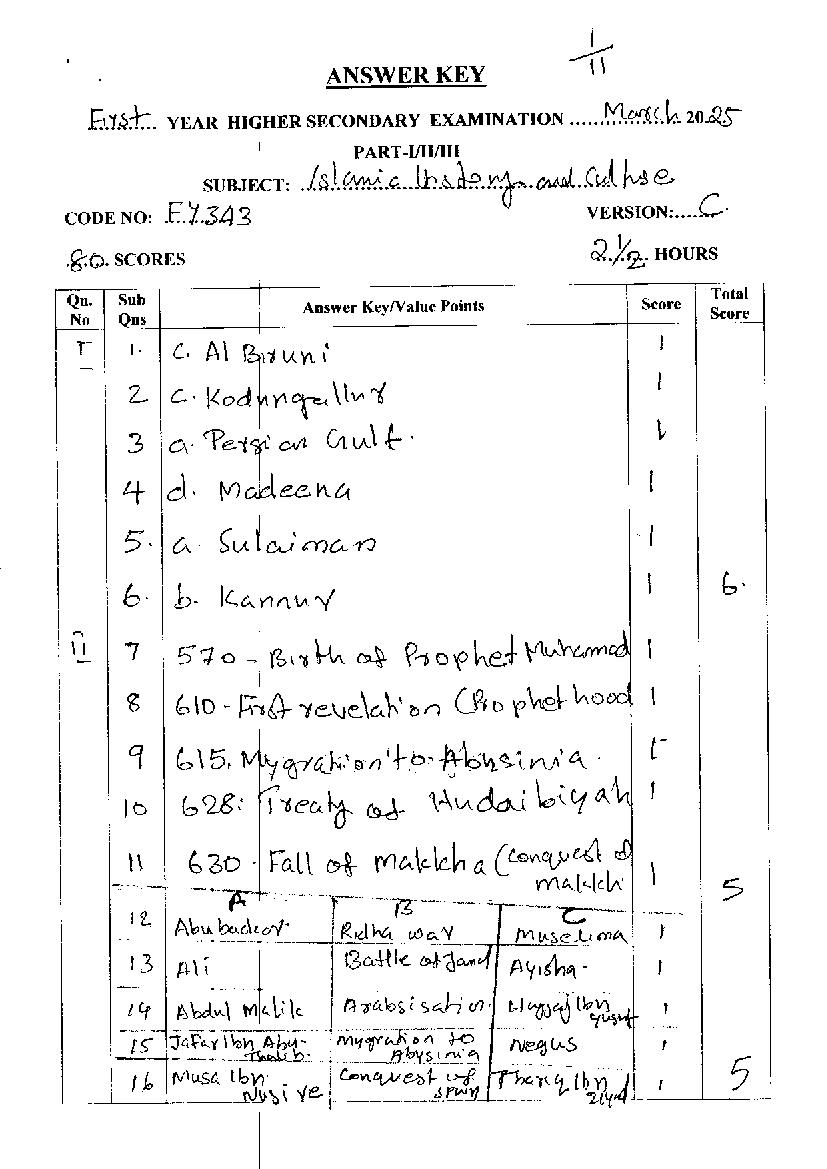 1/11
ANSWER KEY
First YEAR HIGHER SECONDARY EXAMINATION ......March 2025
PART-I/II/III
SUBJECT: Islamic History and Culture
CODE NO: FY343 VERSION:....C
80 SCORES 2 1/2 HOURS
Qu. No Sub Qns Answer Key/Value Points Score Total Score
I 1. c. Al Biruni 1
2 c. Kodungallur 1
3 a. Persian Gulf. 1
4 d. Madeena 1
5. a Sulaiman 1
6. b. Kannur 1 6.
II 7 570 - Birth of Prophet Muhammad 1
8 610 - First revelation (Prophethood 1
9 615. Mygration to Abysinia. 1
10 628: Treaty of Hudaibiyah 1
11 630. Fall of Makkha (conquest of makkh 1 5
A B C
12 Abubacker Ridha war Muselima 1
13 Ali Battle of Jamal Ayisha- 1
14 Abdul Malik Arabsisation Hajjaj Ibn yusuf 1
15 Jafar Ibn Abu-Thalib. mygration to Abysinia Negus 1
16 Musa Ibn Conquest of spain Thariq Ibn ziyad 1 5